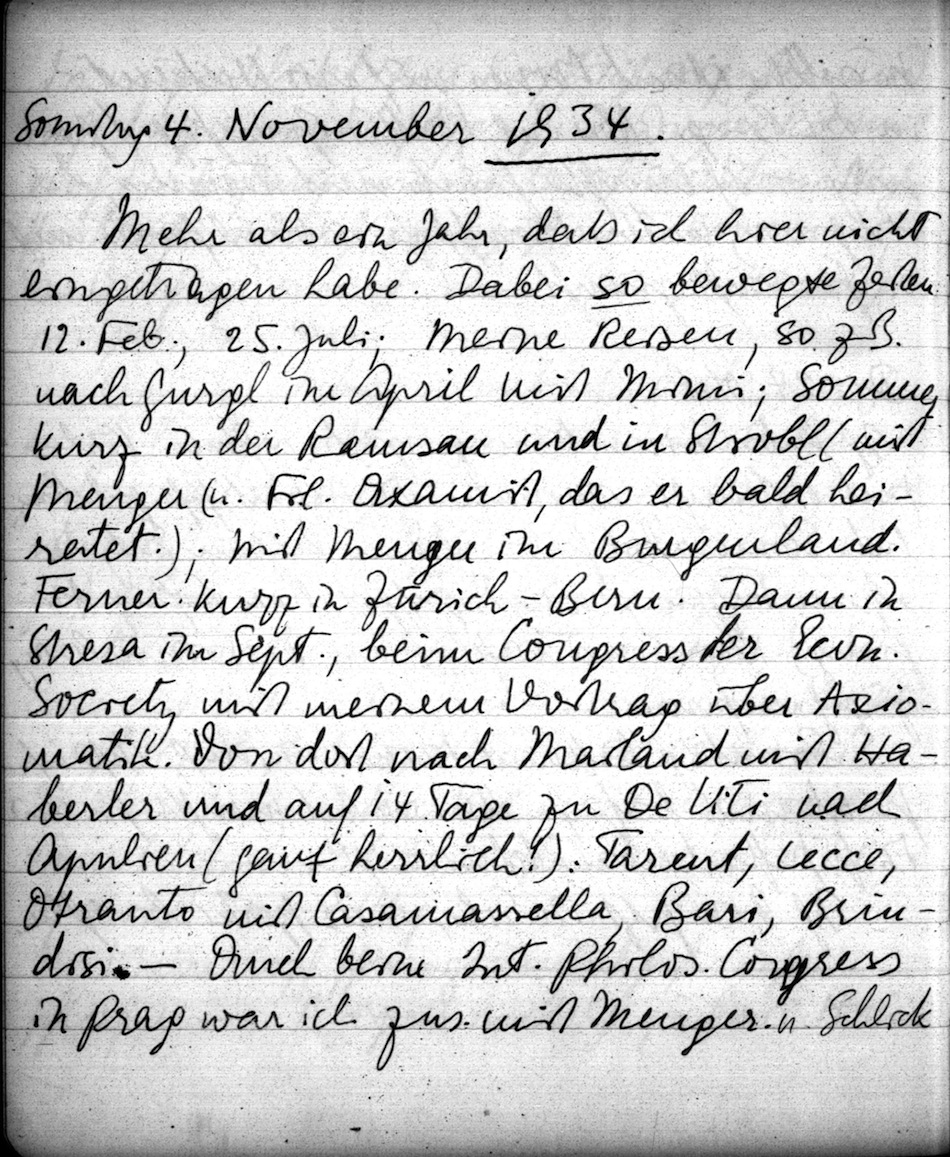 Sonntag 4. November 1934.
Mehr als ein Jahr, daß ich hier nicht
eingetragen habe. Dabei so bewegte Zeiten
12. Feb., 25. Juli; Meine Reisen, so z.B.
nach Gurgl im April mit Mimi; Sommer
kurz in der Ramsau und in Strobl (mit
Menger (u. Frl. Axamit, das er bald hei-
ratet.); mit Menger im Burgenland.
Ferner kurz in Zürich – Bern. Dann in
Stresa im Sept., beim Congress der Econ.
Society mit meinem Vortrag über Axio-
matik. Von dort nach Mailand mit Ha-
berler und auf 14 Tage zu De Viti nach
Apulien (ganz herrlich!). Tarent, Lecce,
Otranto mit Casamassella, Bari, Brin-
disi. — Auch beim Int. Philos. Congress
in Prag war ich zus. mit Menger u. Schlick